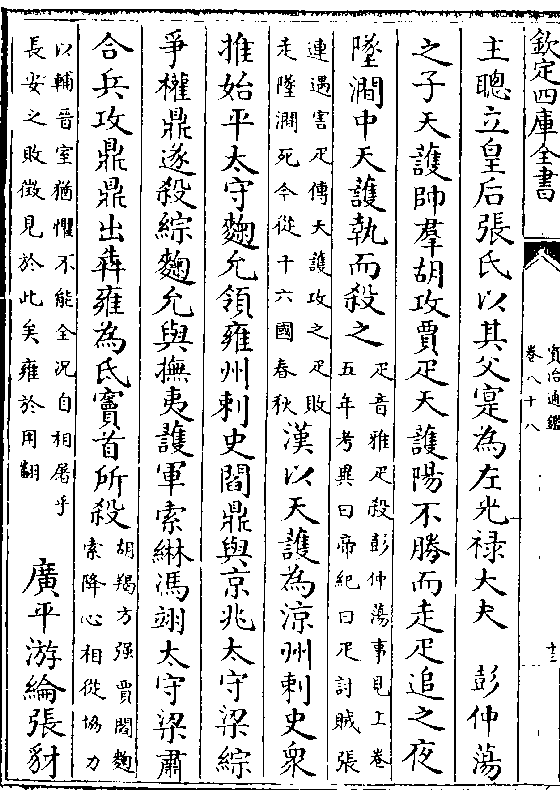 欽定四庫全書
資治通鑑
卷八十八
十三
主聰立皇后張氏以其父寔為左光禄大夫　彭仲蕩
之子天護帥羣胡攻賈疋天護陽不勝而走疋追之夜
墜澗中天護執而殺之
疋音雅疋殺彭仲蕩事見上卷
五年考異曰帝紀曰疋討賊張
連遇害疋傳天護攻之疋敗
走墜澗死今從十六國春秋
漢以天護為涼州刺史衆
推始平太守麴允領雍州刺史閻鼎與京兆太守梁綜
爭權鼎遂殺綜麴允與撫夷護軍索綝馮翊太守梁肅
合兵攻鼎鼎出犇雍為氏竇首所殺
胡羯方强賈閻麴
索降心相從協力
以輔晉室猶懼不能全況自相屠乎
長安之敗徵見於此矣雍於用翻
廣平游綸張豺